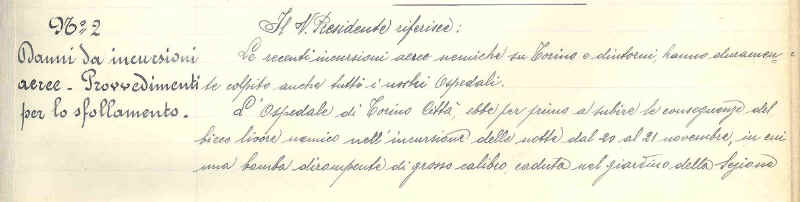 Nº 2
Danni da incursioni
aeree - Provvedimenti
per lo sfollamento.
Il V. Presidente riferisce:
Le recenti incursioni aeree nemiche su Torino e dintorni, hanno duramen=
te colpito anche tutti i nostri Ospedali.
L'Ospedale di Torino Città, ebbe per primo a subire le conseguenze del
bieco livore nemico nell'incursione della notte dal 20 al 21 novembre, in cui
una bomba dirompente di grosso calibro, caduta nel giardino della Sezione